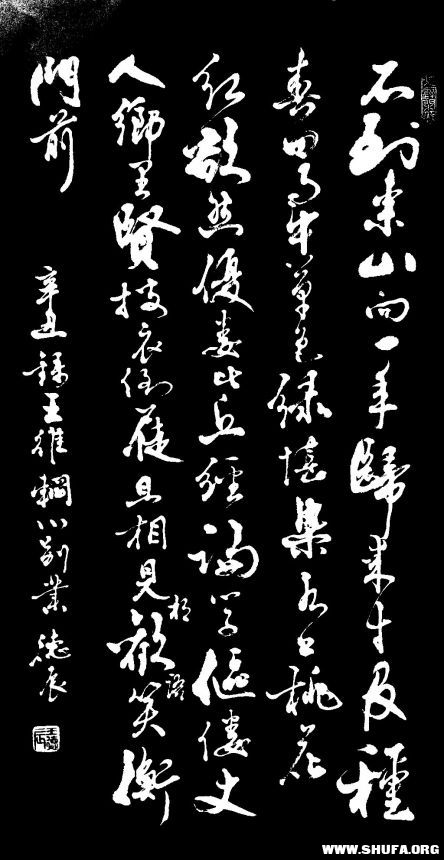 不到東山向一年歸來才及種
春田雨中草色綠堪染水上桃花
紅欲然優婁比丘經論學傴僂丈
人鄉里賢披衣倒屣且相見相歡語笑衡
門前
辛丑錄王維輞川別業 德辰
WWW.SHUFA.ORG